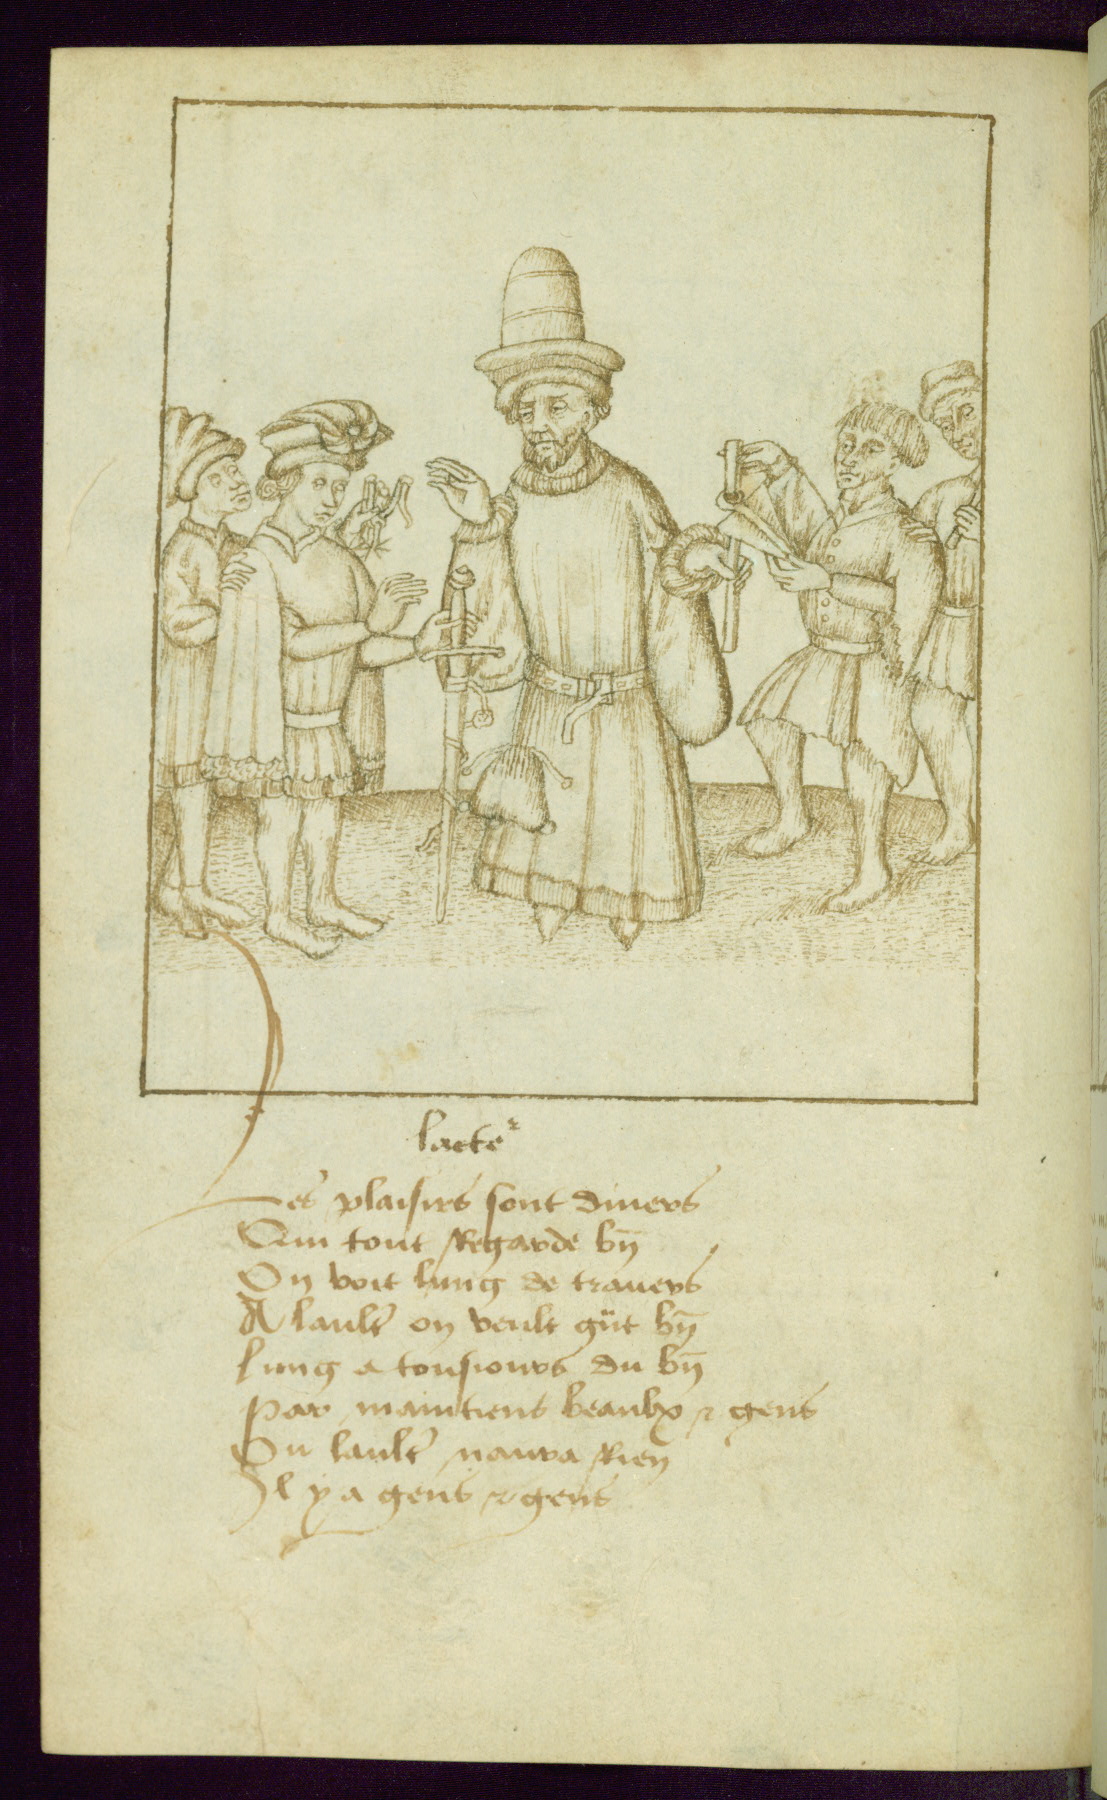 lacteᷣ
Les plaisirs sont diuers
Qui tout Regarde bn̄
On voit lung de trauers
A laultr̄ on veult gñt bn̄
lung a tousiours du bn̄
par maintiens beaulx & gens
Ou laultr̄ naura Rien
Il y a gens & gens